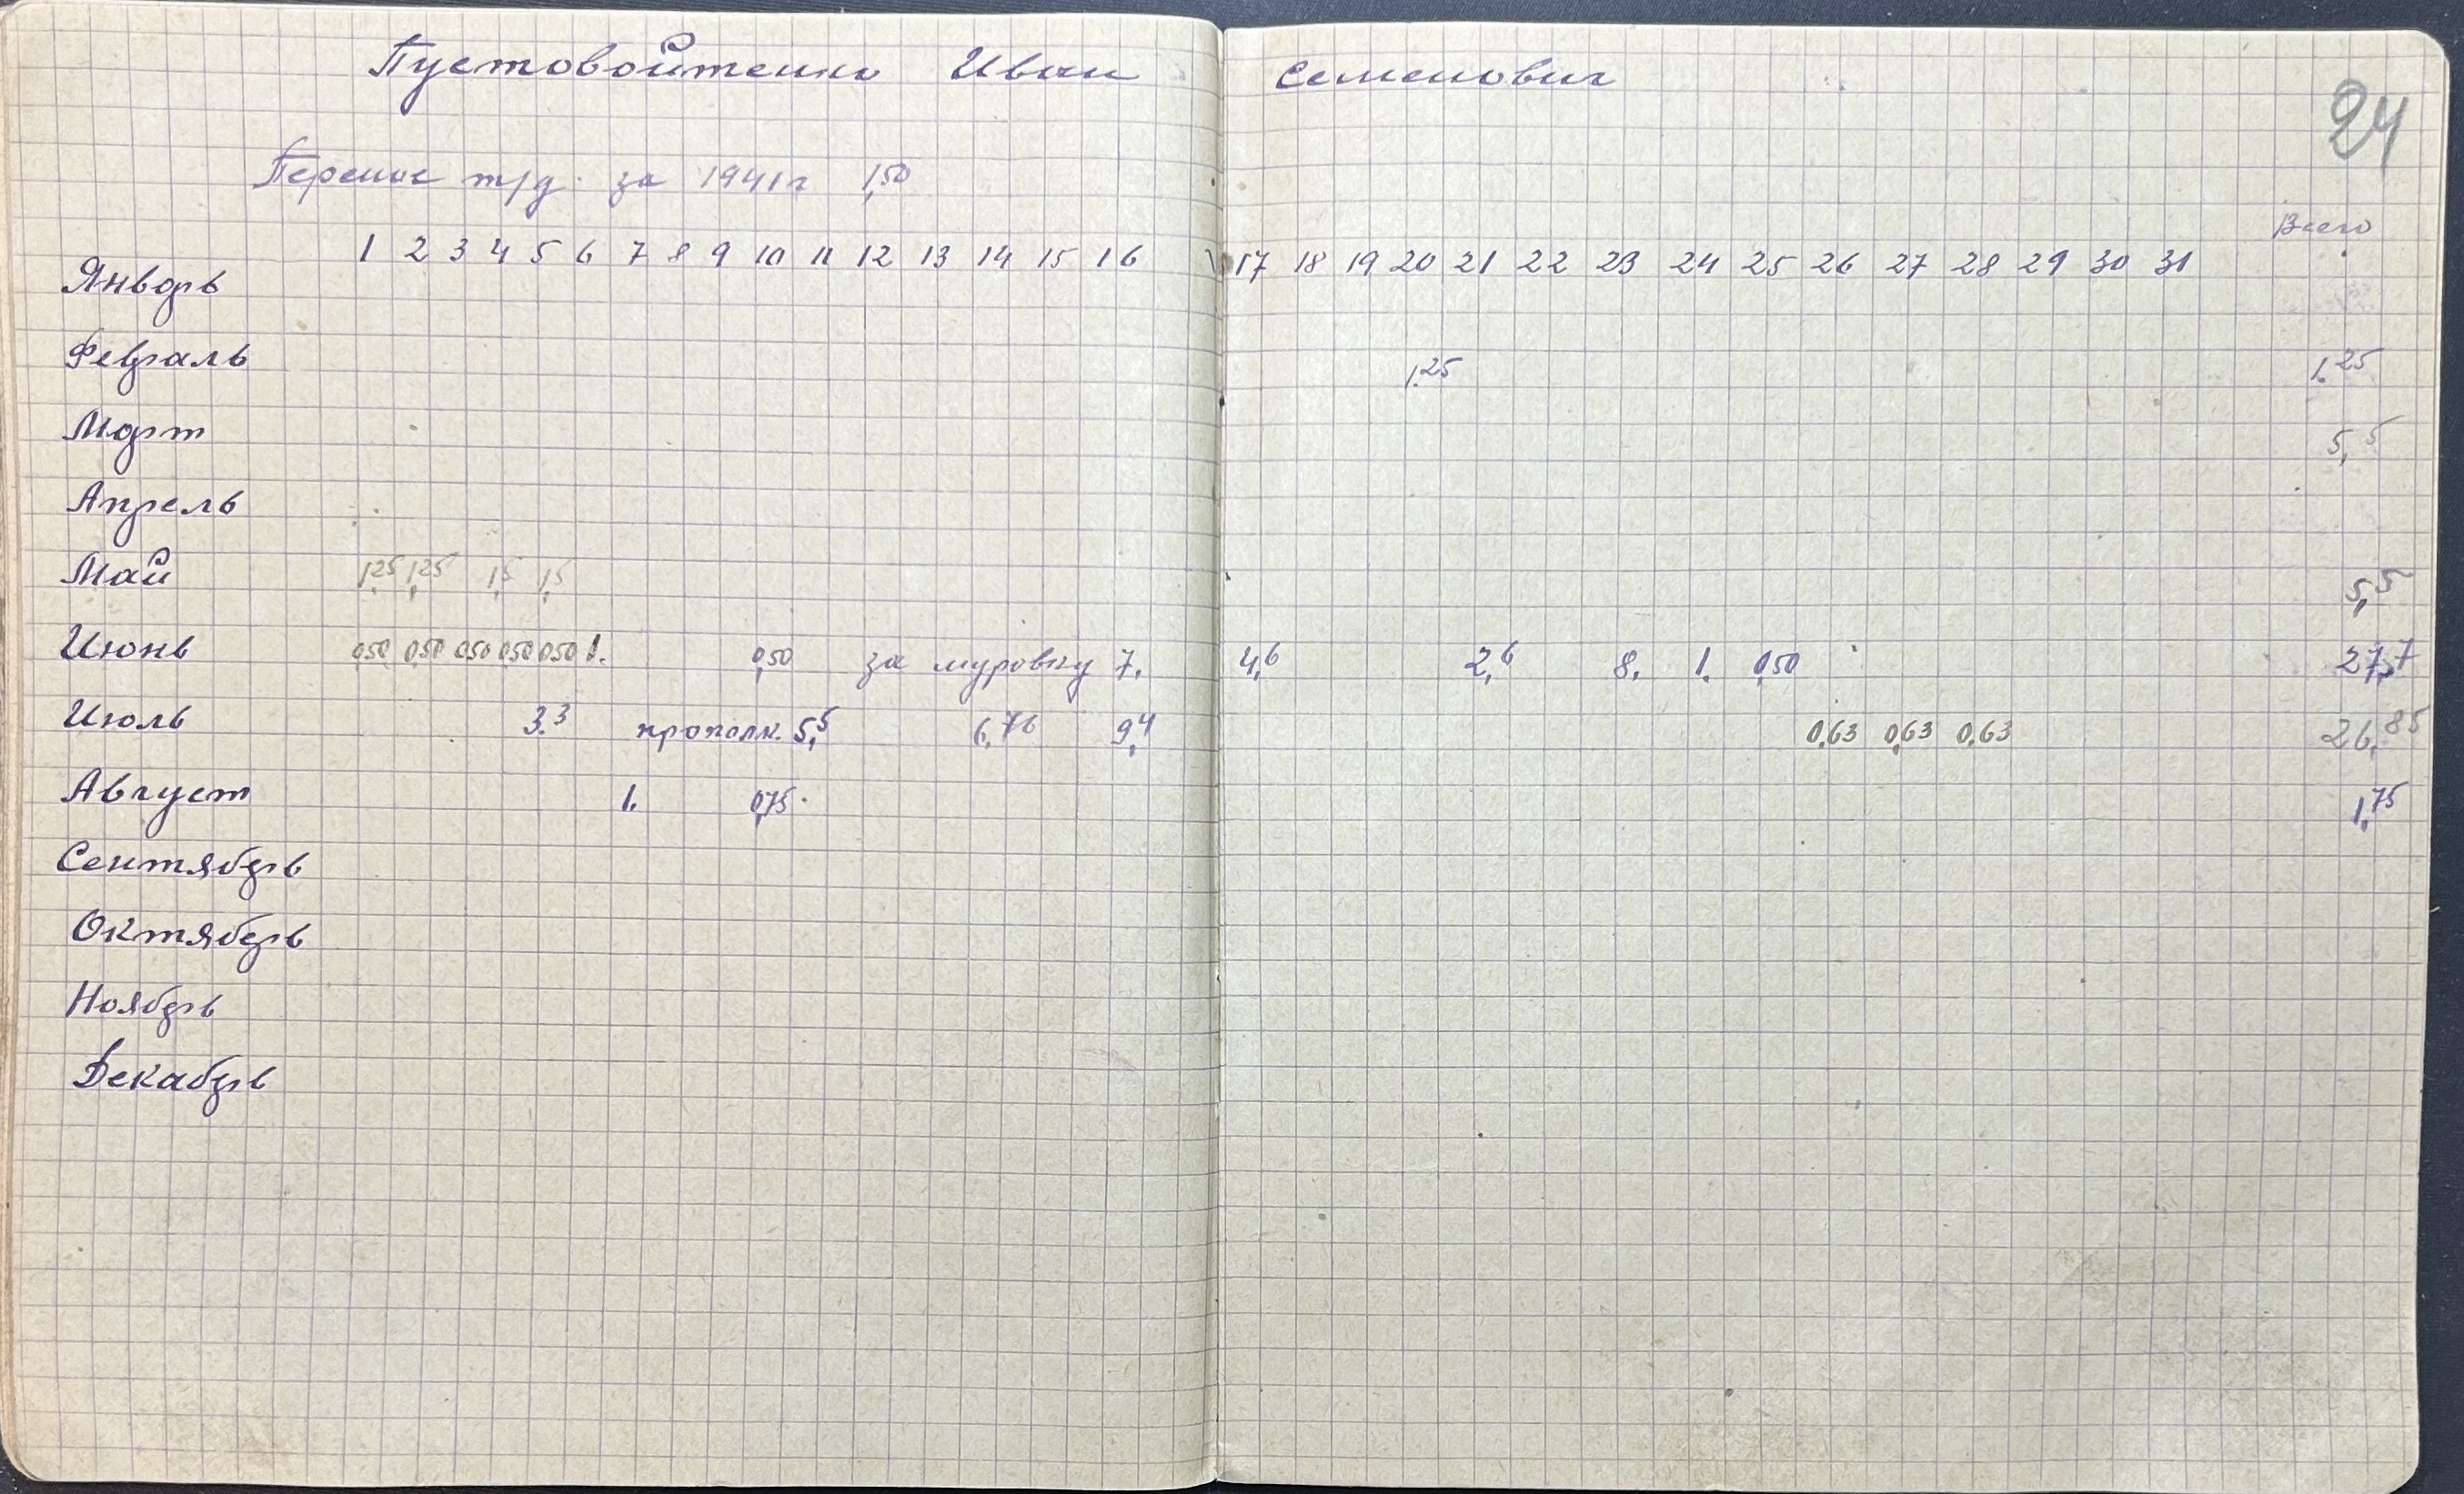 Пустовойтенко Иван Семенович
24
Перенос т/д. за 1941 г 1,50
Всего
1 2 3 4 5 6 7 8 9 10 11 12 13 14 15 16 17 18 19 20 21 22 23 24 25 26 27 28 29 30 31
Январь
Февраль 1.25 1.25
Март 5,5
Апрель
Май 1,25 1,25 1,5 1,5 5,5
Июнь 0,50 0,50 0,50 0,50 0,50 1. 0,50 за муровку 7. 4,6 2,6 8. 1. 0,50 27,7
Июль 3.3 прополк. 5,5 6,76 9,4 0,63 0,63 0,63 26,85
Август 1. 0,75 1,75
Сентябрь
Октябрь
Ноябрь
Декабрь